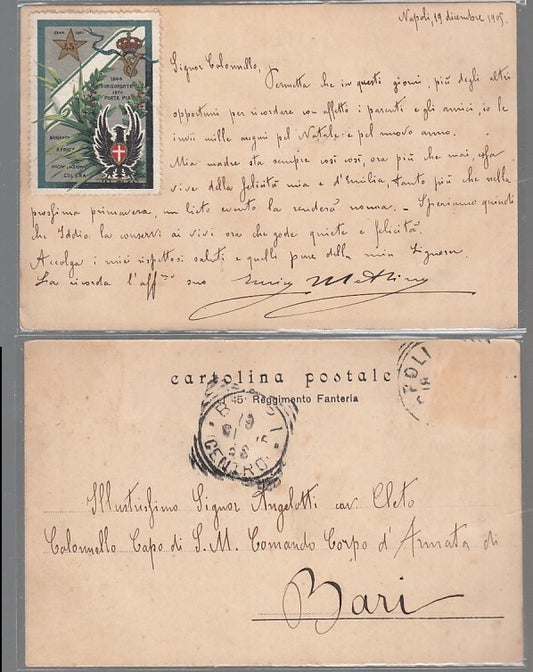 Napoli, 19 dicembre 1905
45
1866
BORGOFORTE
1870
PORTA PIA
BRIGANTAGGIO
AFRICA
COLERA
Signor Colonnello,
Permetta che in questi giorni, più degli altri
opportuni per ricordare con affetto i parenti e gli amici, io le
invii mille auguri pel Natale e pel nuovo anno.
Mia madre sta sempre così così, ora più che mai, essa
vive della felicità mia e d'Emilia, tanto più che nella
prossima primavera, un lieto evento la renderà nonna. – Speriamo quindi
che Iddio la conservi ai vivi ora che gode quiete e felicità.
Accolga i miei rispettosi saluti e quelli pure della mia Signora.
La ricorda l'aff.mo suo
cartolina postale
45 Reggimento Fanteria
POLI
CENTRO
Illustrissimo Signor Angelotti cav. Cleto
Colonnello Capo di S. M. Comando Corpo d'Armata di
Bari